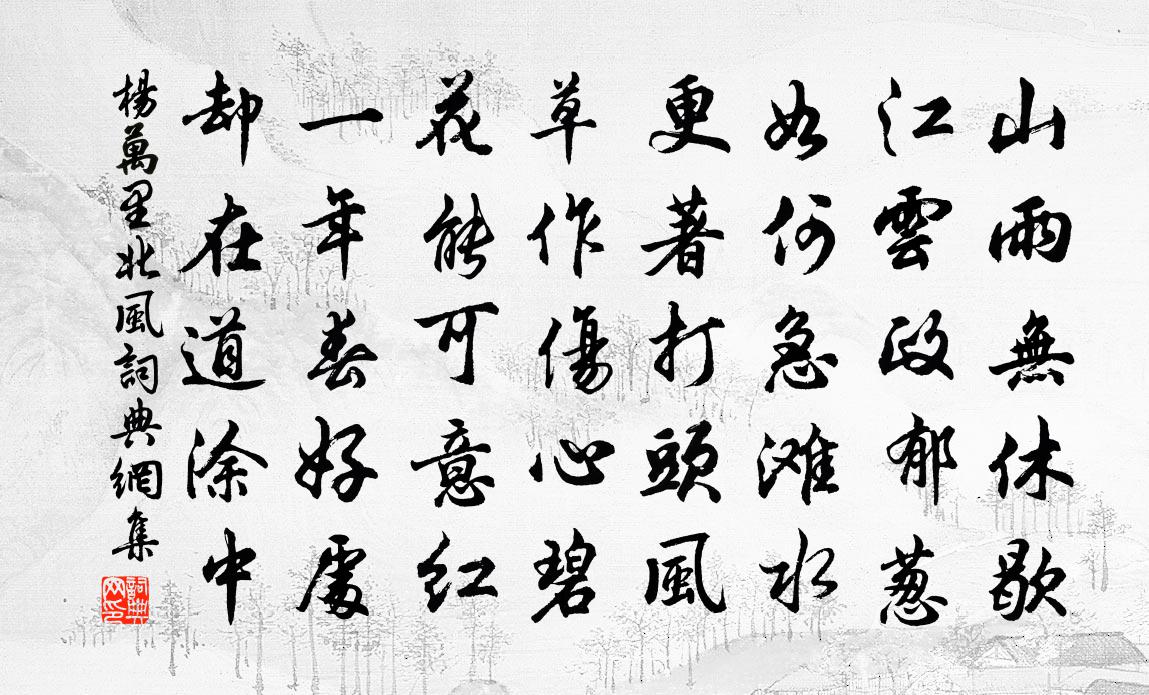 山雨無休歇
江雲政郁葱
如何急滩水
更著打頭風
草作傷心碧
花能可意紅
一年春好處
却在道涂中
楊萬里北風詞典網集
詞典网印